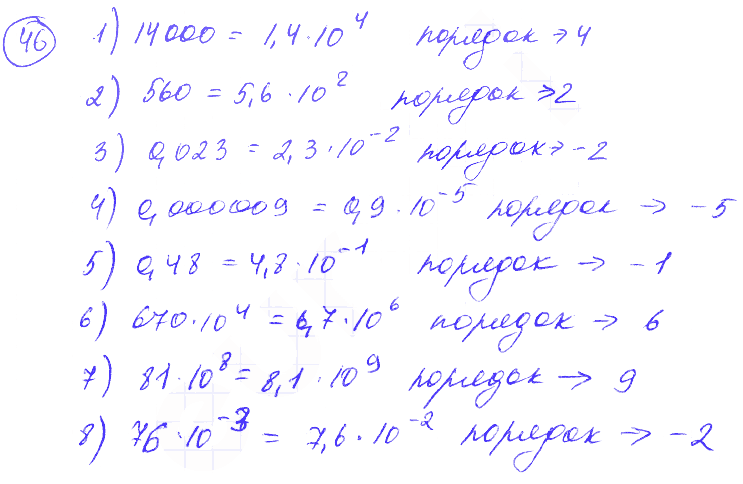 46 1) 14000 = 1,4·10⁴ порядок → 4
2) 560 = 5,6·10² порядок → 2
3) 0,023 = 2,3·10⁻² порядок → -2
4) 0,000009 = 0,9·10⁻⁵ порядок → -5
5) 0,48 = 4,8·10⁻¹ порядок → -1
6) 670·10⁴ = 6,7·10⁶ порядок → 6
7) 81·10⁸ = 8,1·10⁹ порядок → 9
8) 76·10⁻³ = 7,6·10⁻² порядок → -2